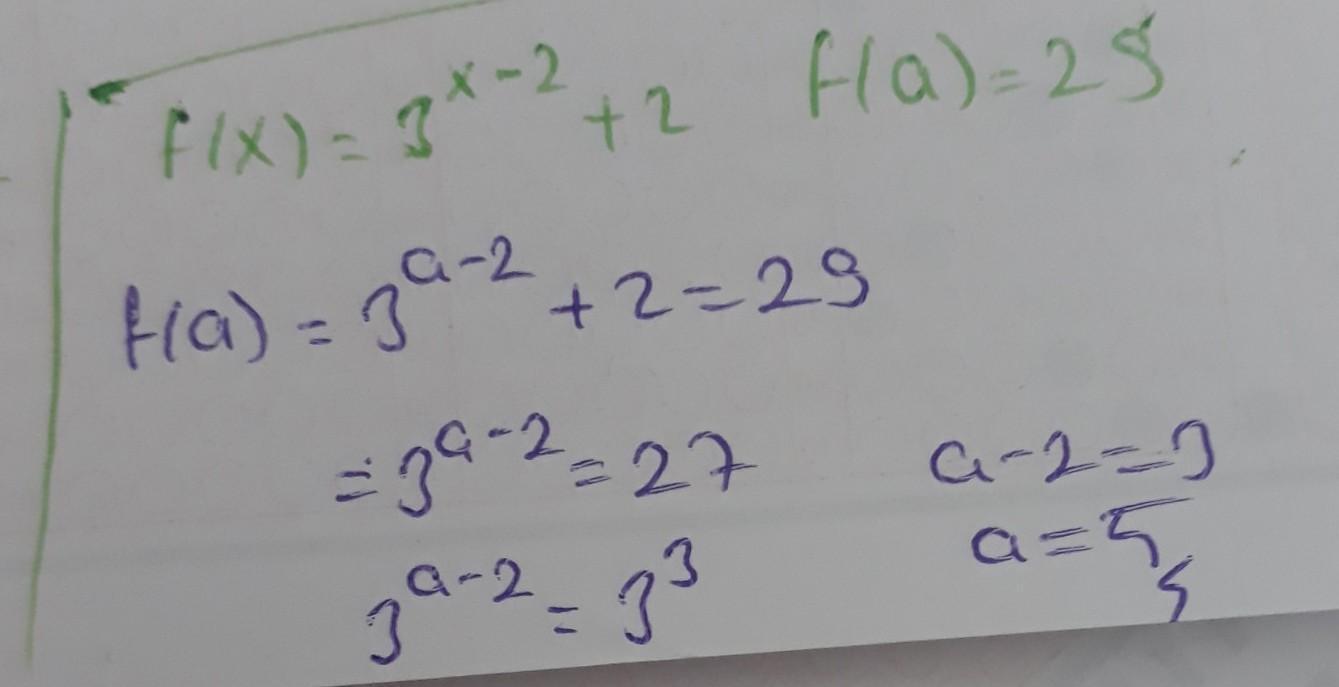 f(x) = 3^{x-2} + 2 f(a) = 29
f(a) = 3^{a-2} + 2 = 29
= 3^{a-2} = 27 a-2=3
3^{a-2} = 3^3 a=5